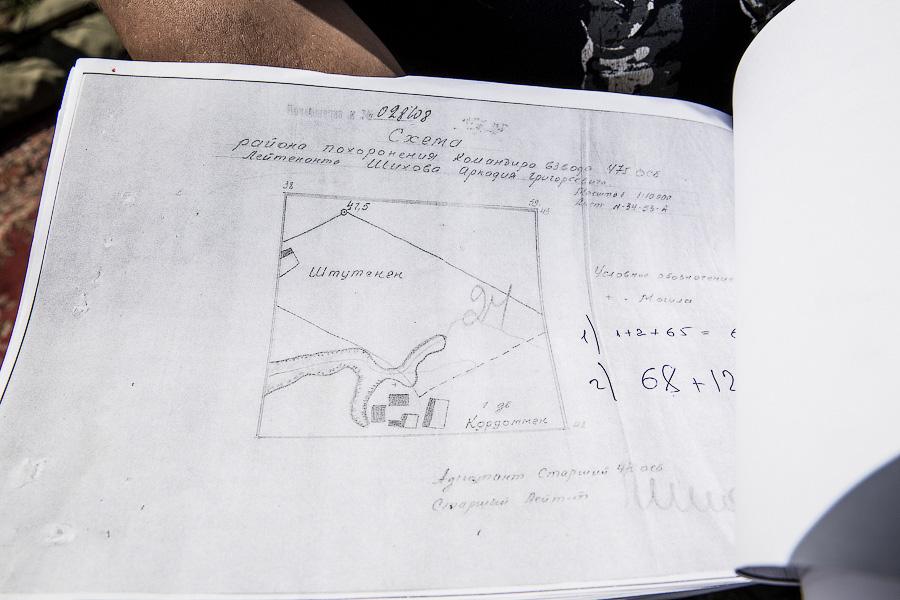 028408
Схема
района похоронения Командира взвода 475 ОСБ
Лейтенанта Шихова Аркадия Григорьевича
Масштаб 1:10000
Лист N-34-53-А
38
47,5
Штутенен
24
Условное обозначение
+ - Могила
1) 1+2+65 =
2) 68+12
г. дв
Кордоммен
Адъютант Старший 475 осб
Старший Лейт-т